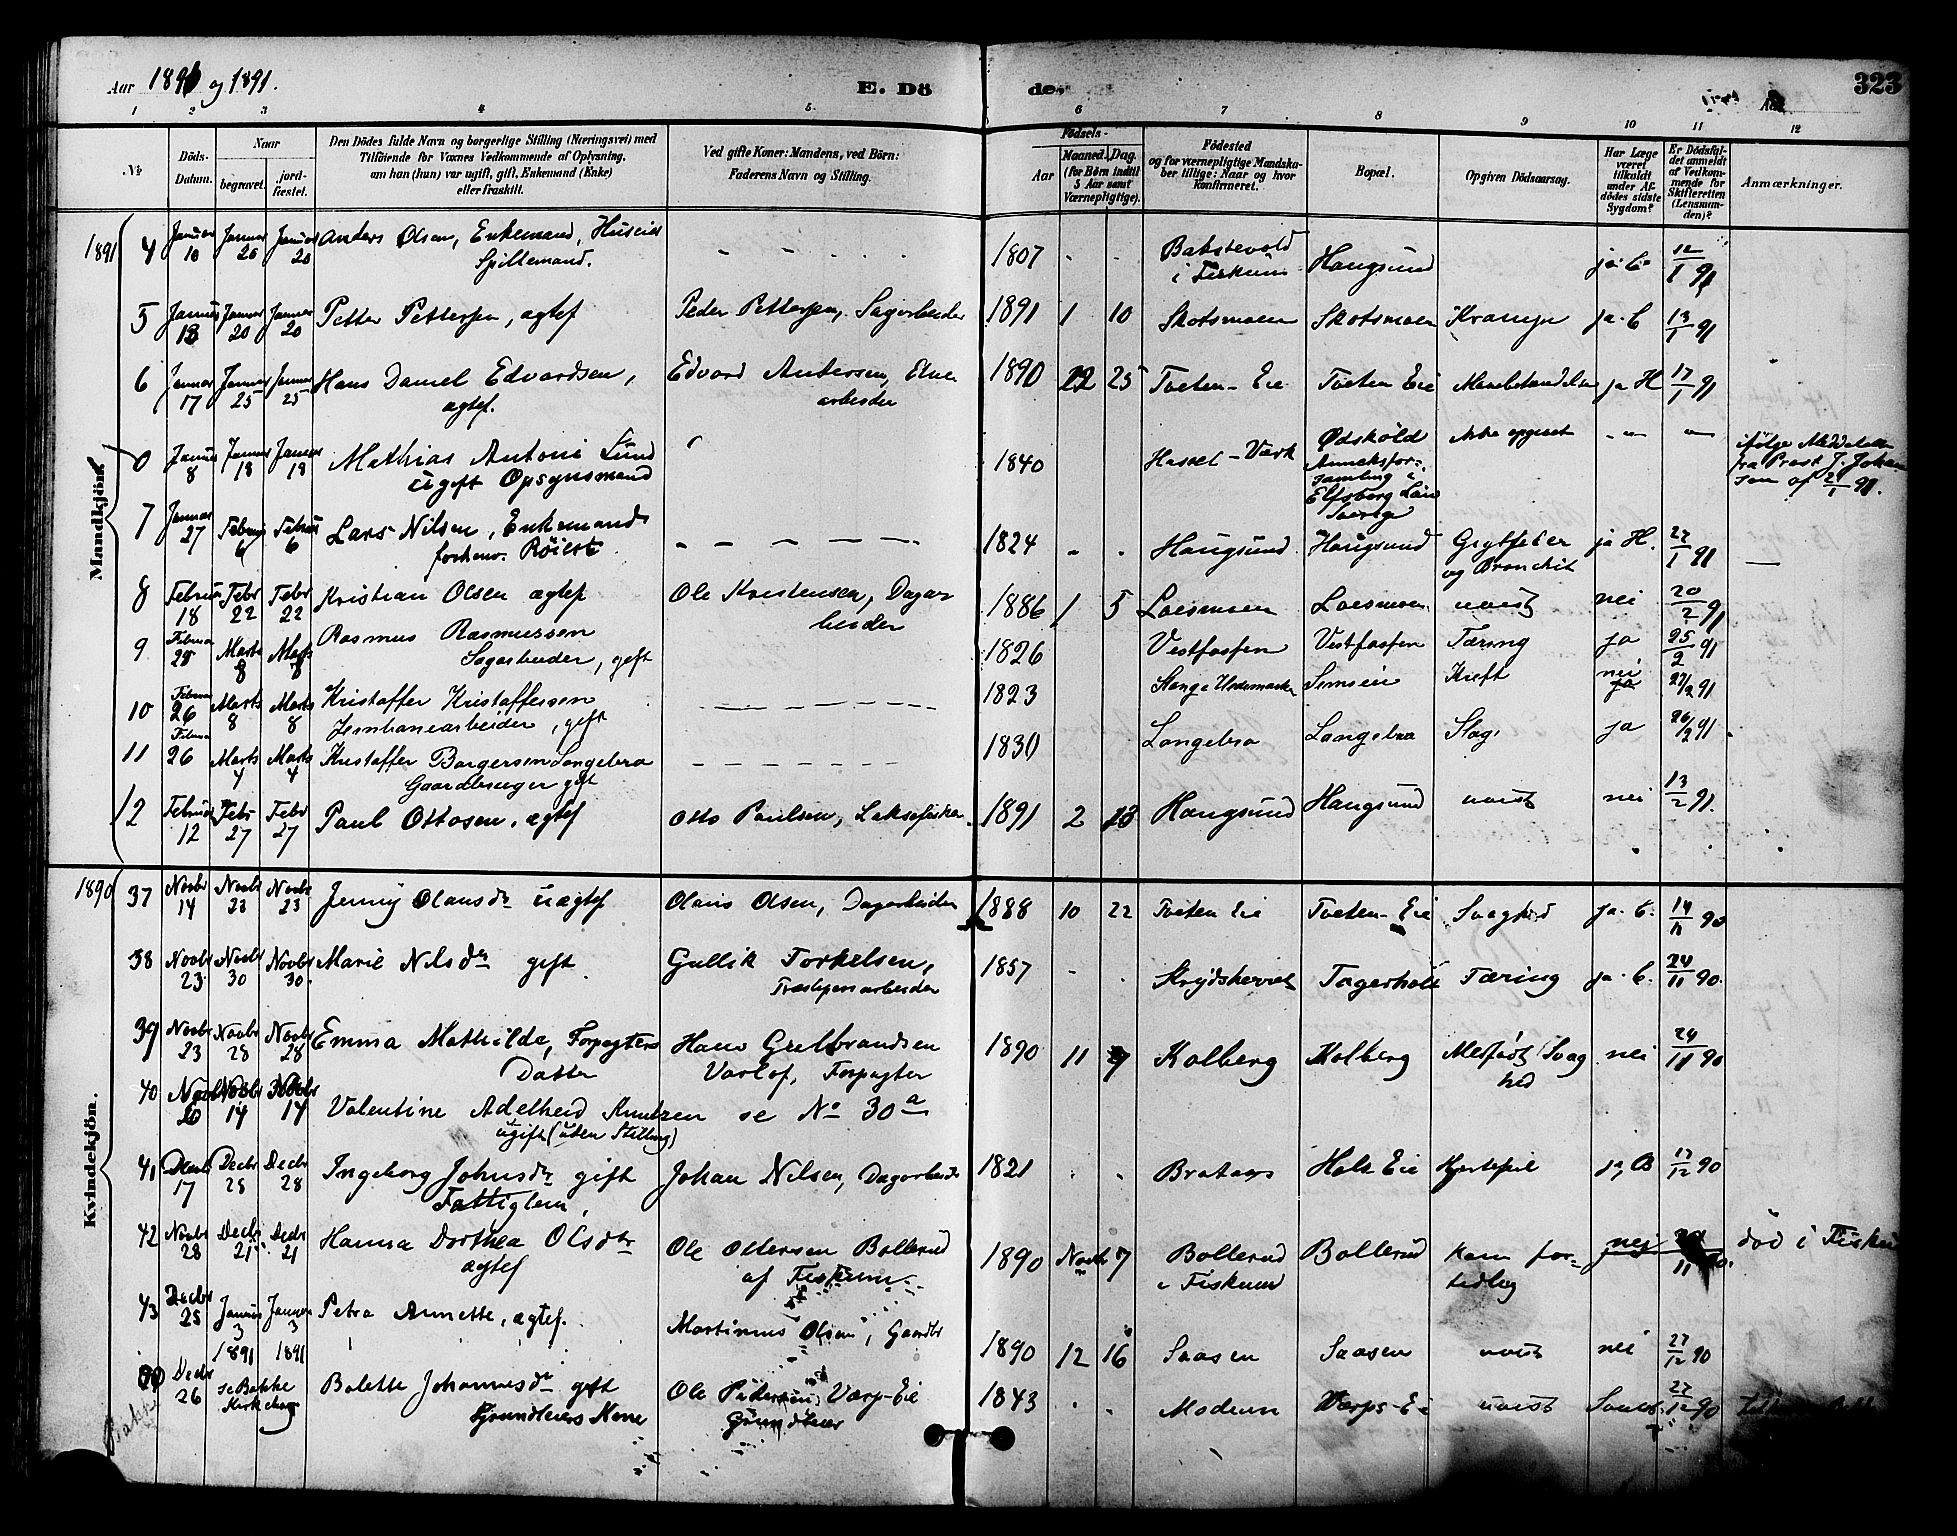 Aar 1890 og 1891.
E. Dö
de
323
1 2 3 4 5 6 7 8 9 10 11 12
No
Döds-
Datum.
Naar
begravet.
jord-
fæstet.
Den Dödes fulde Navn og borgerlige Stilling (Næringsvei) med
Tilföiende for Voxnes Vedkommende af Oplysning,
om han (hun) var ugift, gift, Enkemand (Enke)
eller fraskilt.
Ved gifte Koner: Mandens, ved Börn:
Faderens Navn og Stilling.
Födsels-
Aar
Maaned. Dag.
(for Börn indtil
5 Aar samt
Værnepligtige).
Födested
og for værnepligtige Mandska-
ber tillige: Naar og hvor
konfirmeret.
Bopæl.
Opgiven Dödsaarsag.
Har Læge
været
tilkaldt
under Af-
dödes sidste
Sygdom?
Er Dödsfal-
det anmeldt
af Vedkom-
mende for
Skifteretten
(Lensman-
den)?
Anmærkninger.
Mandkjön.
1891 4 Januar 10 Januar 20 Januar 20 Anders Olsen, Enkemand, Huseier
Spillemand. 1807 Bakstevold
i Fiskum Haugsund ja C. 12/1 91
5 Januar 13 Januar 20 Januar 20 Petter Pettersen, ægtef Peder Pettersen, Sagarbeider 1891 1 10 Skotsmoen Skotsmoen Krampe ja C 13/1 91
6 Januar 17 Januar 25 Januar 25 Hans Daniel Edvardsen,
ægtef. Edvard Andersen, Elve
arbeider 1890 12 25 Tveten-Eie Tveten Eie ja H 17/1 91
0 Januar 8 Januar 18 Januar 18 Mathias Antoni Lund
ugift Opsynsmand 1840 Hassel-Værk Ødskøld
Anneksfor-
samling i
Elfsborg Län
Sverige ikke opgivet ifølge Meddelelse
fra Prest J. Johan
sen af 21/1 91.
7 Januar 27 Februar 6 Februar 6 Lars Nilsen, Enkemand
forhenv. 1824 Haugsund Haugsund
og Bronchit ja H. 27/1 91
8 Februar 18 Febr 22 Febr 22 Kristian Olsen ægtef Ole Kristensen, Dagar
beider 1886 1 5 Loesmoen Loesmoen uvist nei 20/2 91
9 Februar 28 Marts 8 Marts 8 Rasmus Rasmussen
Sagarbeider, gift 1826 Vestfossen Vestfossen Tæring ja 25/2 91
10 Februar 26 Marts 8 Marts 8 Kristoffer Kristoffersen
Jernbanearbeider, gift 1823 Stange Hedemarken Semseie Kræft nei
ja 27/2 91
11 Februar 26 Marts 4 Marts 4 Kristoffer Borgersen Langebro
Gaardbruger gift 1830 Langebro Langebro Slag ja 26/2 91
12 Februar 12 Febr 27 Febr 27 Paul Ottosen, ægtef Otto Paulsen, Laksefisker 1891 2 Haugsund Haugsund uvist nei 13/2 91
Kvindekjön.
1890 37 Novbr 14 Novbr 23 Novbr 23 Jenny Olausdr uægtef Olaus Olsen, Dagarbeider 1888 10 22 Tveten Eie Tveten-Eie Svaghed ja C. 14/11 90
38 Novbr 23 Novbr 30 Novbr 30 Marie Nilsdr gift Gullik Torkelsen,
Træsliperiarbeider 1857 Tæring ja C. 24/11 90
39 Novbr 23 Novbr 28 Novbr 28 Emma Mathilde, Forpagters
Datter Hans Gulbrandsen
Varlof, Forpagter 1890 11 7 Kolberg Kolberg Medfødt Svag
hed nei 24/11 90
40 Novbr Novbr 14 Novbr 14 Valentine Adelheid Knudsen se No 30a
ugift (uden Stilling)
41 Decbr 17 Decbr 28 Decbr 28 Ingeborg Johnsdr gift
Fattiglem, Johan Nilsen, Dagarbeider 1821 Brataas Holt Eie Hjertefeil ja B 17/12 90
42 Novbr 28 Decbr 21 Decbr 21 Hanna Dorthea Olsdtr
ægtef Ole Ottersen Bollerud
af Fiskum 1890 Novbr 7 Bollerud
i Fiskum Bollerud kom for
tidlig nei død i Fiskum
43 Decbr 25 Januar 3 1891 Januar 3 1891 Petra Annette, ægtef. Martinus Olsen, Gaardbr 1890 12 16 Saasen Saasen uvist nei 27/12 90
Decbr 26 se Bakke
Kirkebog Bolette Johannesdr gift
Grundleiers Kone Ole Pedersen, Værp-Eie
Grundleier 1843 Modum Værps-Eie uvist 27/12 90